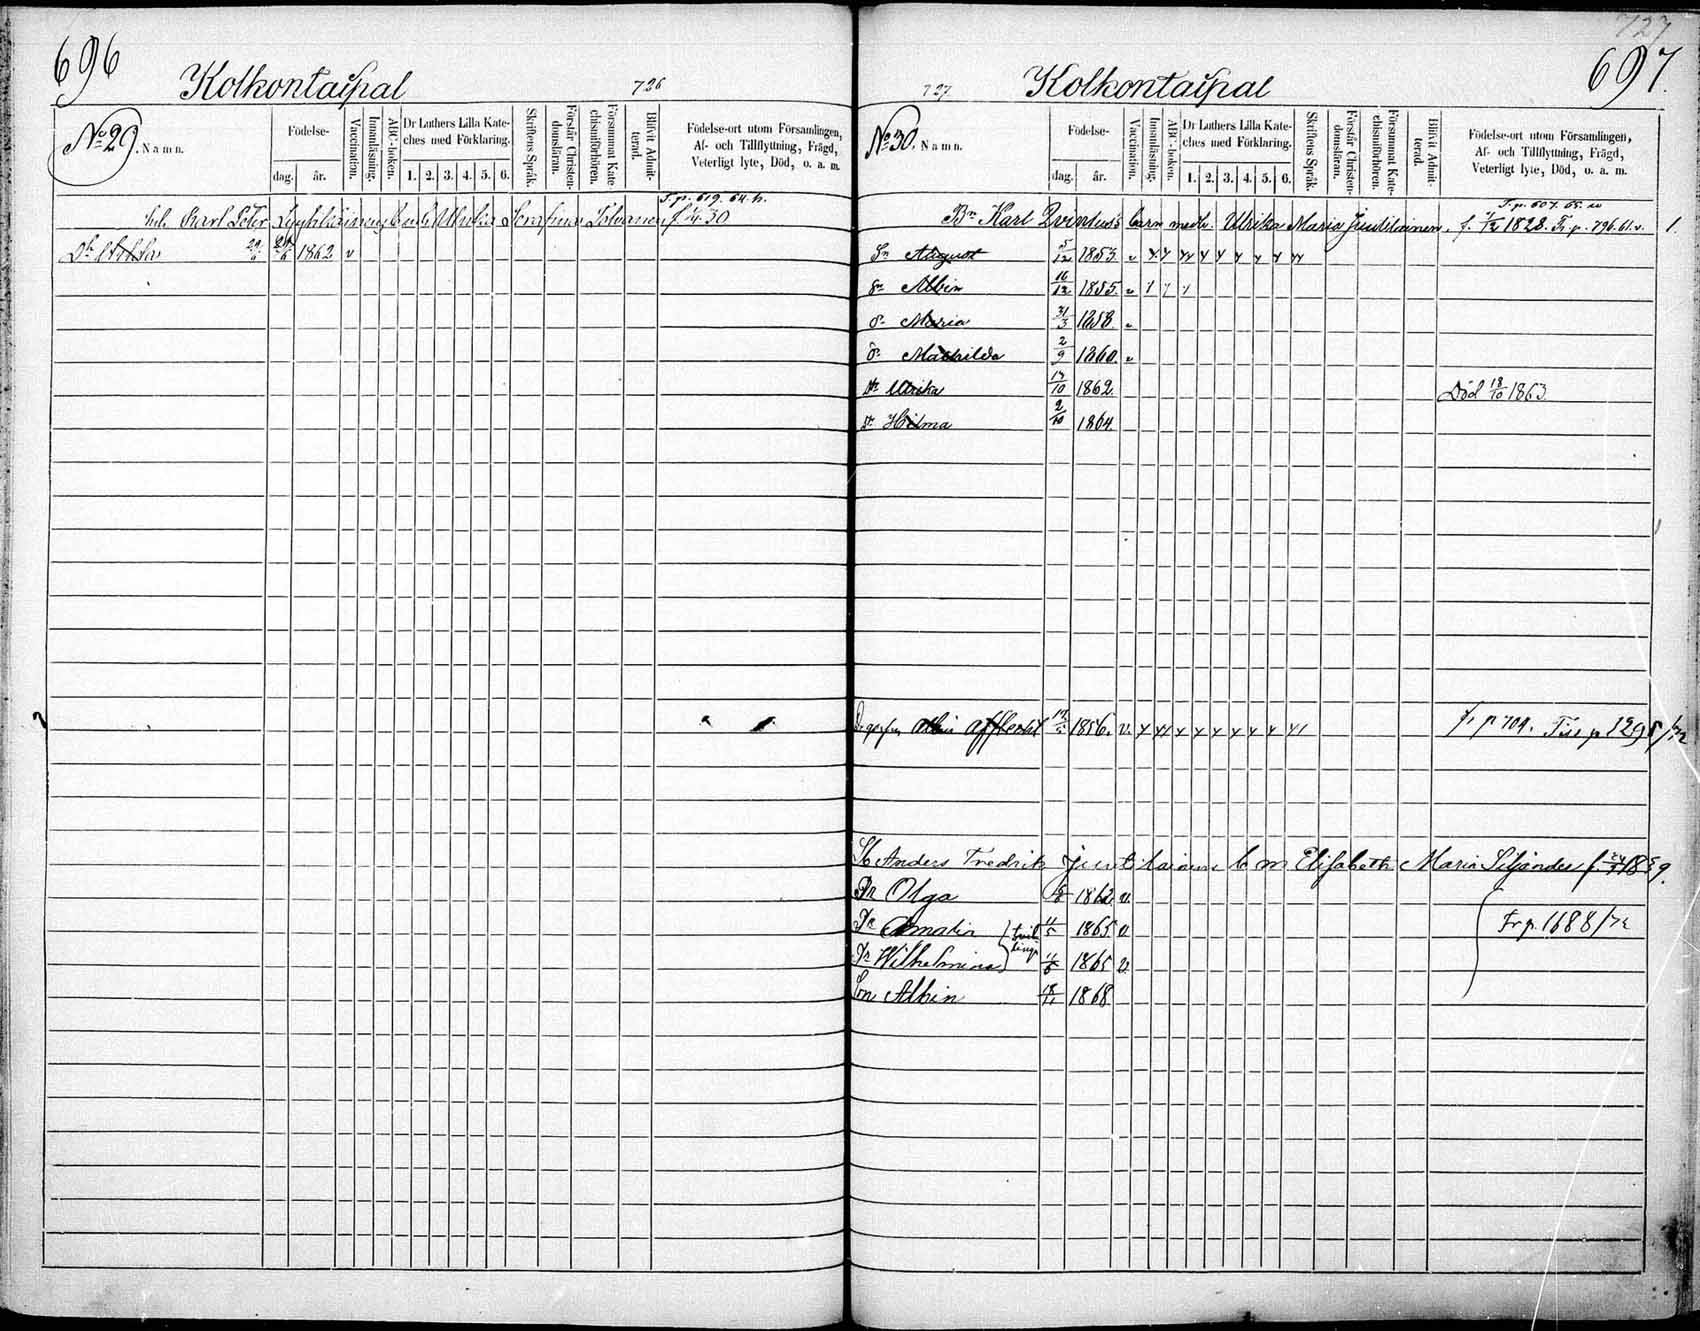 696
Kolkontaipal
726
No 29.
Namn.
Födelse-
dag.
år.
Vaccination.
Innanläsning.
ABC-boken.
Dr Luthers Lilla Kate-
ches med Förklaring.
1. 2. 3. 4. 5. 6.
Skriftens Språk.
Förstår Christen-
domsläran.
Försummat Kate
chismiförhören.
Blifvit Admit-
terad.
Födelse-ort utom Församlingen,
Af- och Tillflyttning, Frägd,
Veterligt lyte, Död, o. a. m.
T. p. 619. 64. h.
Karl Peter Lyytikäinens Serafina f. 4.30
1862 v
727
697.
727
Kolkontaipal
No 30.
Namn.
Födelse-
dag.
år.
Vaccination.
Innanläsning.
ABC-boken.
Dr Luthers Lilla Kate-
ches med Förklaring.
1. 2. 3. 4. 5. 6.
Skriftens Språk.
Förstår Christen-
domsläran.
Försummat Kate-
chismiförhören.
Blifvit Admit-
terad.
Födelse-ort utom Församlingen,
Af- och Tillflyttning, Frägd,
Veterligt lyte, Död, o. a. m.
T. p. 607. 65.
Bn Karl Qvintus's barn medh. Ulrika Maria Juutilainen. f. 1/12 1828. Fr. p. 796. 61. 1.
Sn August 5/12 1853. v
Sn Albin 16/12 1855. v
Dr Maria 31/3 1858. v
Dr Mathilda 2/9 1860. v
Dr Ulrika 17/10 1862. Död 18/10 1863.
Dr Hilma 2/10 1864.
Albin Afflecht 1856. v. fr p 704. p 1295/72
Anders Fredrik Juutilainens b m Elisabeth Maria Siljander f. 1859.
Dr Olga 1862 v.
Dr Amalia 11/5 1865 v
tvil
lingr
Dr Wilhelmina 11/5 1865 v.
Fr p. 1688/72
Son Albin 18/11 1868